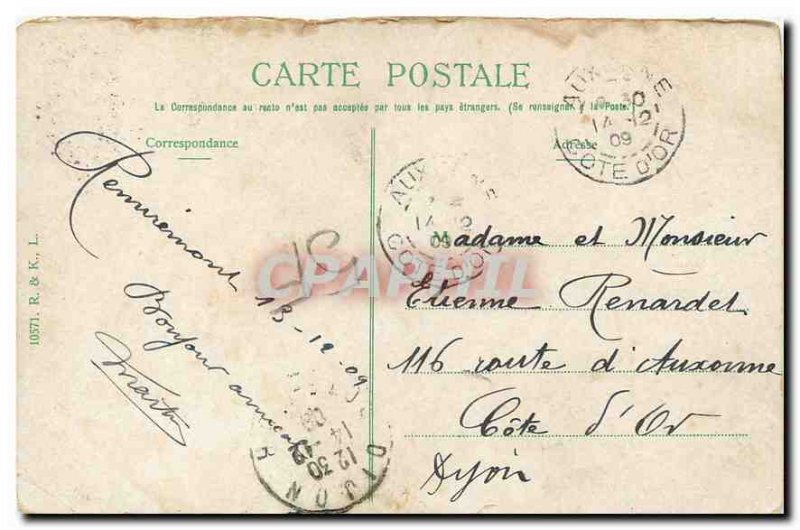 CARTE POSTALE
La Correspondance au recto n'est pas acceptée par tous les pays étrangers. (Se renseigner à la Poste.)
Correspondance
Adresse
AUXONNE
14-12
09
COTE D'OR
AUXONNE
14-12
09
COTE D'OR
Remiremont 13-12-09
Bonjour amical
Martin
Madame et Monsieur
Etienne Renardet
116 route d'Auxonne
Côte d'Or
Dijon
DIJON
12 30
14-12
09
10571. R. & K., L.
CPAPHIL